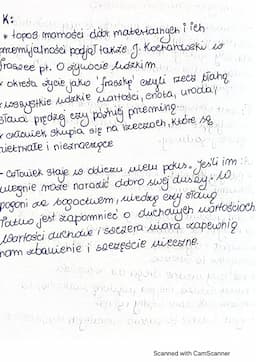 K:
• topos marności dóbr materialnych i ich
przemijalności podjął także J. Kochanowski w
fraszce pt. O żywocie ludzkim.
• określa życie jako 'fraszkę' czyli rzecz błahą
• wszystkie ludzkie wartości, cnota, uroda,
sława prędzej czy później przeminą
• człowiek skupia się na rzeczach, które są
nietrwałe i nieznaczące
- Człowiek staje w obliczu wielu pokus. Jeśli im
ulegnie może narazić dobro swej duszy. W
pogoni za bogactwem, wiedzą czy sławą
łatwo jest zapomnieć o duchowych wartościach
Wartości duchowe i szczera wiara zapewnią
nam zbawienie i szczęście wieczne.
Scanned with CamScanner